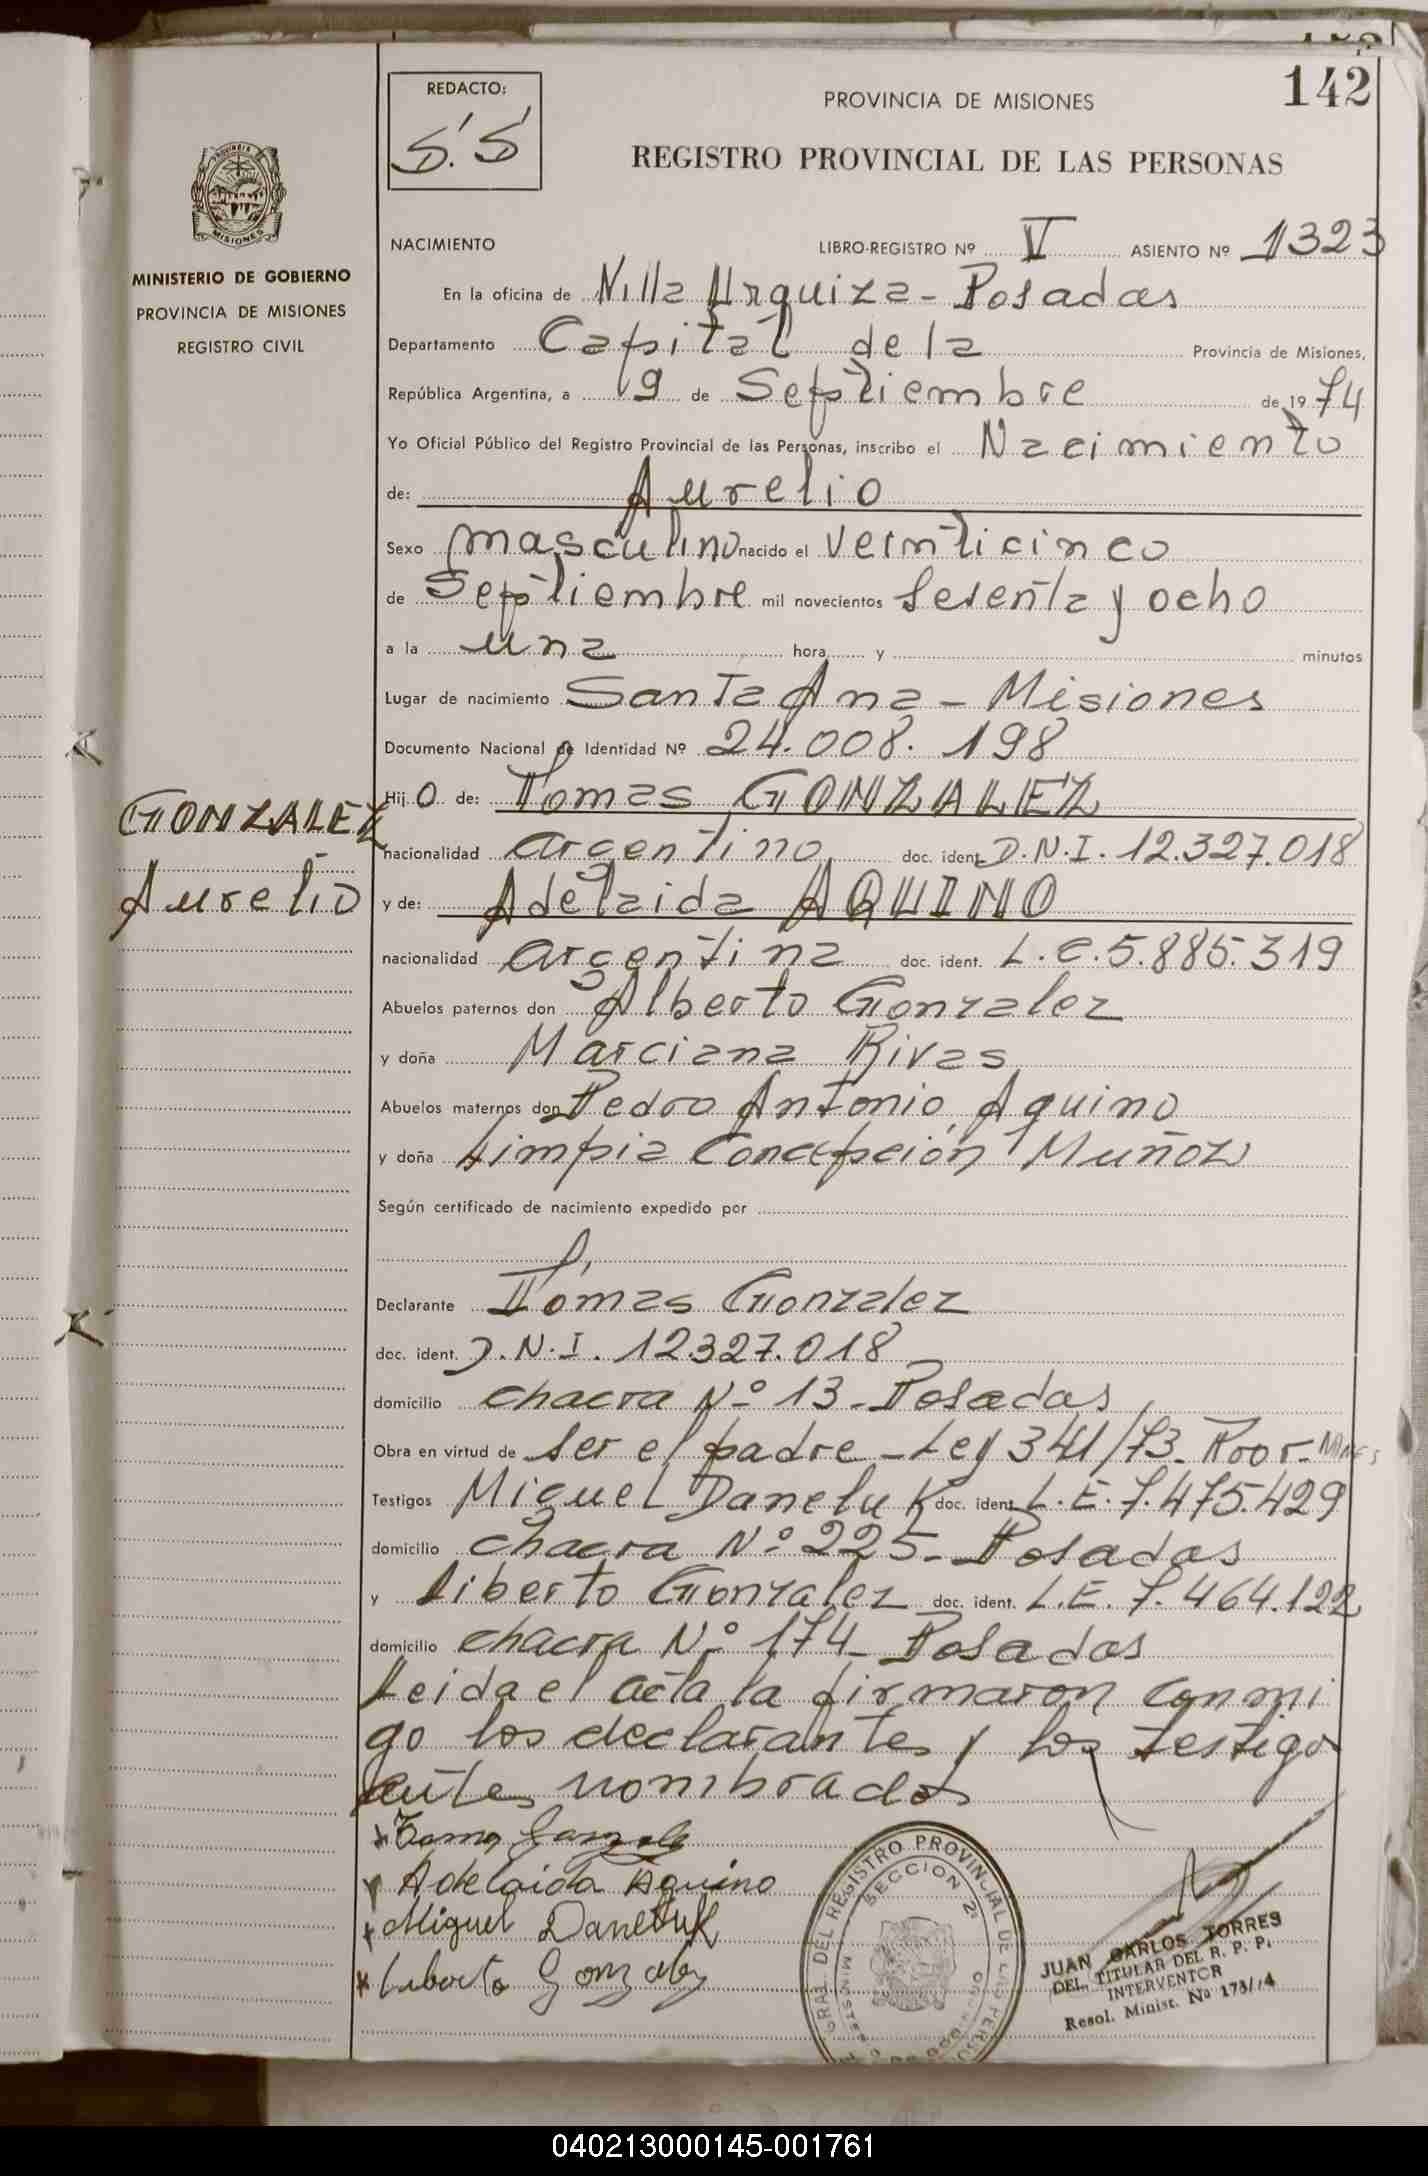 142
REDACTO:
S. S
PROVINCIA DE MISIONES
REGISTRO PROVINCIAL DE LAS PERSONAS
PROVINCIA DE
MISIONES
MINISTERIO DE GOBIERNO
PROVINCIA DE MISIONES
REGISTRO CIVIL
NACIMIENTO LIBRO-REGISTRO Nº V ASIENTO Nº 1323
En la oficina de Villa Urquiza - Posadas
Departamento Capital de la Provincia de Misiones,
República Argentina, a 19 de Septiembre de 1974
Yo Oficial Público del Registro Provincial de las Personas, inscribo el Nacimiento
de: Aurelio
Sexo masculino nacido el veinticinco
de Septiembre mil novecientos sesenta y ocho
a la una hora y minutos
Lugar de nacimiento Santa Ana - Misiones
Documento Nacional de Identidad Nº 24.008.198
Hijo de: Tomas GONZALEZ
GONZALEZ
nacionalidad argentino doc. ident. D.N.I. 12.327.018
Aurelio
y de: Adelaida AQUINO
nacionalidad argentina doc. ident. L.C. 5.885.319
Abuelos paternos don Alberto Gonzalez
y doña Marciana Rivas
Abuelos maternos don Pedro Antonio Aquino
y doña Limpia Concepción Muñoz
Según certificado de nacimiento expedido por
Declarante Tomas Gonzalez
doc. ident. D.N.I. 12.327.018
domicilio chacra Nº 13 - Posadas
Obra en virtud de ser el padre - Ley 341/73
Testigos Miguel Daneluk doc. ident. L.E. 7.475.429
domicilio chacra Nº 225 - Posadas
y Liberto Gonzalez doc. ident. L.E. 7.464.122
domicilio chacra Nº 174 - Posadas
Leida el acta la firmaron conmi
go los declarantes y los testigo
antes nombrados
Adelaida Aquino
Miguel Daneluk
Liberto Gonzalez
GRAL. DEL REGISTRO PROVINCIAL DE LAS PERSO
SECCION 2ª
JUAN CARLOS TORRES
DEL. TITULAR DEL R. P. P.
INTERVENTOR
Resol. Minist. Nº 173/74
040213000145-001761